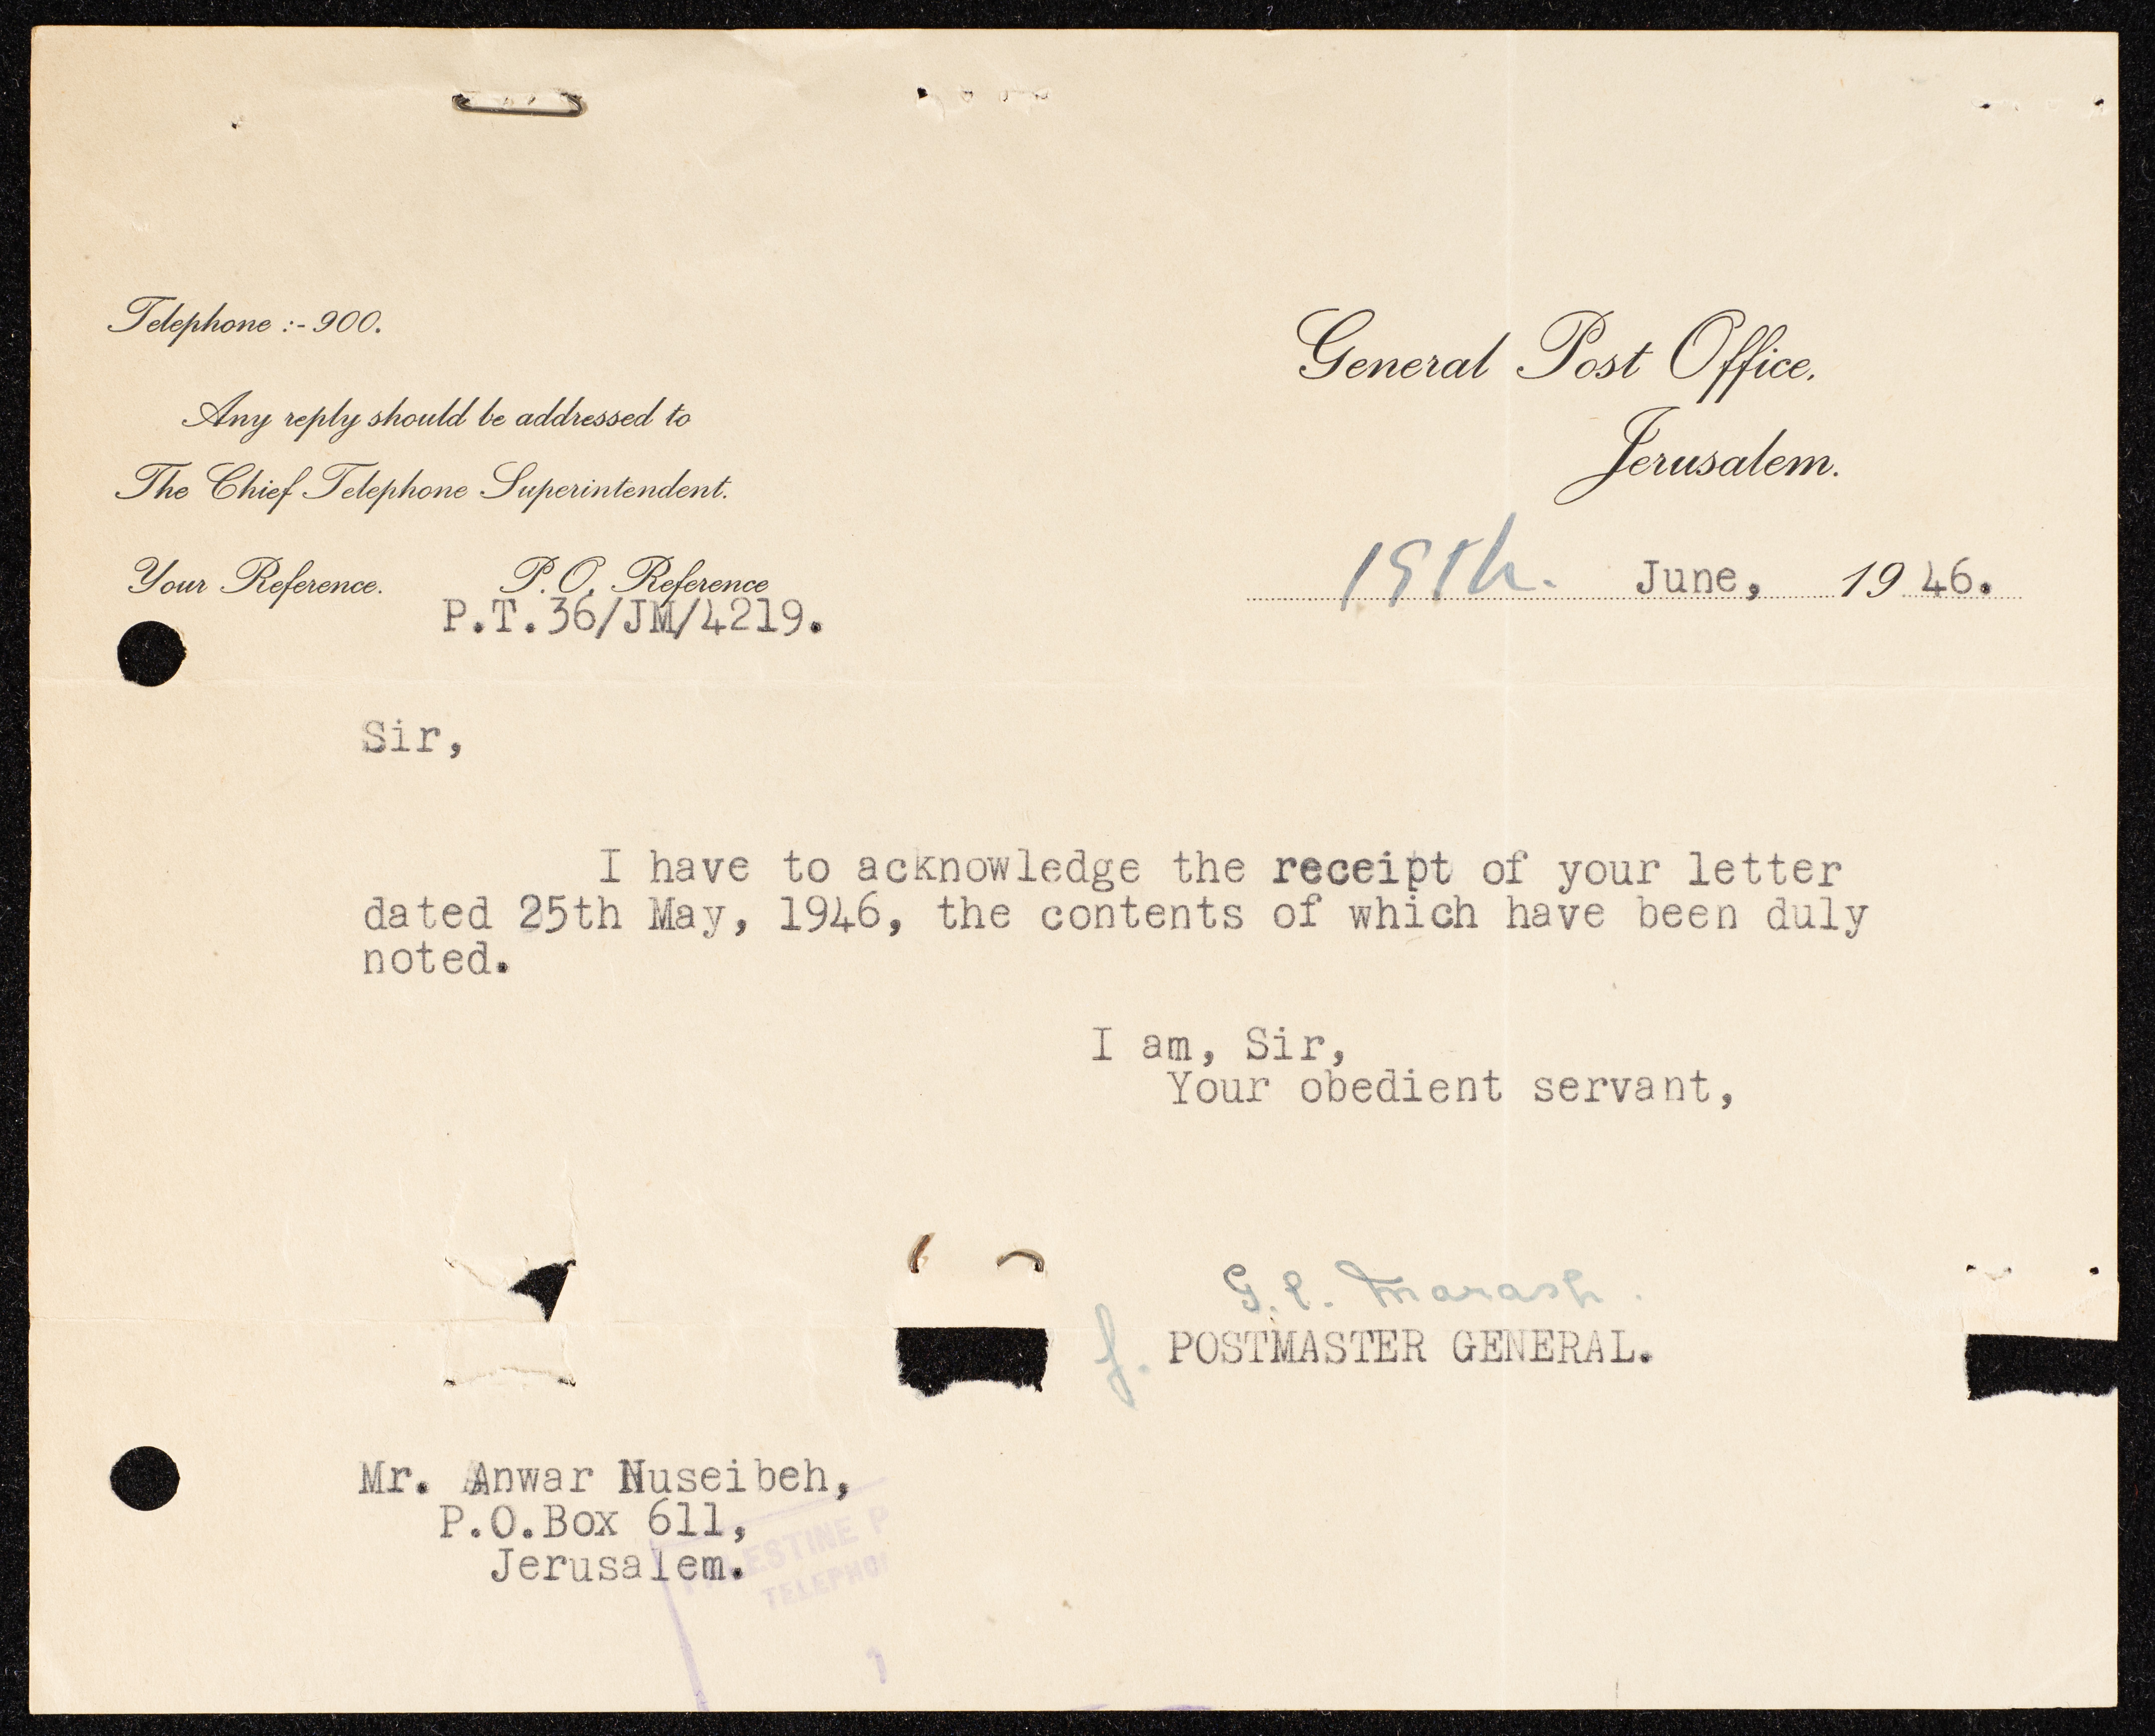 Telephone :- 900.
General Post Office,
Jerusalem.
Any reply should be addressed to
The Chief Telephone Superintendent.
19th. June, 1946.
Your Reference. P.O. Reference
P.T.36/JM/4219.
Sir,
I have to acknowledge the receipt of your letter
dated 25th May, 1946, the contents of which have been duly
noted.
I am, Sir,
Your obedient servant,
f. POSTMASTER GENERAL.
Mr. Anwar Nuseibeh,
P.O.Box 611,
Jerusalem.
PALESTINE P
TELEPHO